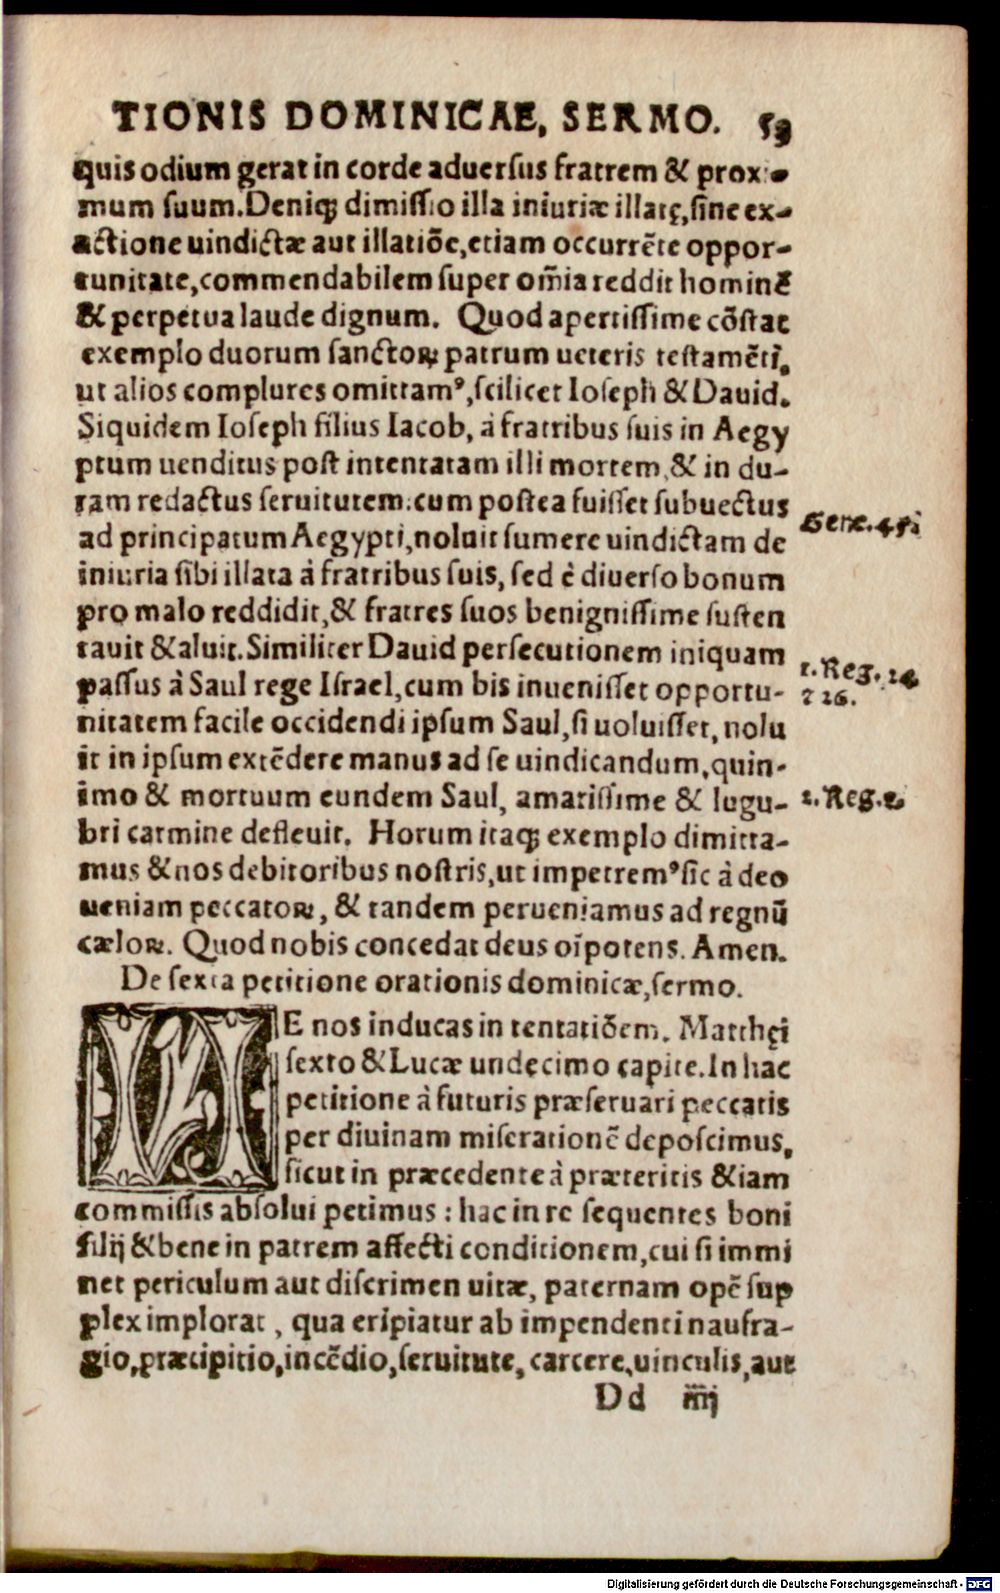 TIONIS DOMINICAE, SERMO. 53
quis odium gerat in corde aduersus fratrem & prox-
mum suum. Deniqꝫ dimissio illa iniuriæ illatę, sine ex-
actione uindictæ aut illatiõe, etiam occurrẽte oppor-
tunitate, commendabilem super om̃ia reddit hominẽ
& perpetua laude dignum. Quod apertissime cõstat
exemplo duorum sanctoꝝ patrum ueteris testamẽti,
ut alios complures omittamꝰ, scilicet Ioseph & Dauid.
Siquidem Ioseph filius Iacob, à fratribus suis in Aegy
ptum uenditus post intentatam illi mortem, & in du-
ram redactus seruitutem: cum postea fuisset subuectus
ad principatum Aegypti, noluit sumere uindictam de
iniuria sibi illata à fratribus suis, sed è diuerso bonum
pro malo reddidit, & fratres suos benignissime susten
tauit & aluit. Similiter Dauid persecutionem iniquam
passus à Saul rege Israel, cum bis inuenisset opportu-
nitatem facile occidendi ipsum Saul, si uoluisset, nolu
it in ipsum extẽdere manus ad se uindicandum, quin-
imo & mortuum eundem Saul, amarissime & lugu-
bri carmine defleuit. Horum itaqꝫ exemplo dimitta-
mus & nos debitoribus nostris, ut impetremꝰ sic à deo
ueniam peccatoꝝ, & tandem perueniamus ad regnũ
cæloꝝ. Quod nobis concedat deus oĩpotens. Amen.
De sexta petitione orationis dominicæ, sermo.
NE nos inducas in tentatiõem. Matthęi
sexto & Lucæ undecimo capite. In hac
petitione à futuris præseruari peccatis
per diuinam miserationẽ deposcimus,
sicut in præcedente à præteritis & iam
commissis absolui petimus: hac in re sequentes boni
filij & bene in patrem affecti conditionem, cui si immi
net periculum aut discrimen uitæ, paternam opẽ sup
plex implorat, qua eripiatur ab impendenti naufra-
gio, præcipitio, incẽdio, seruitute, carcere, uinculis, aut
Dd iiij
Gene. 45.
1. Reg. 24
⁊ 26.
2. Reg. 1.
Digitalisierung gefördert durch die Deutsche Forschungsgemeinschaft - DFG